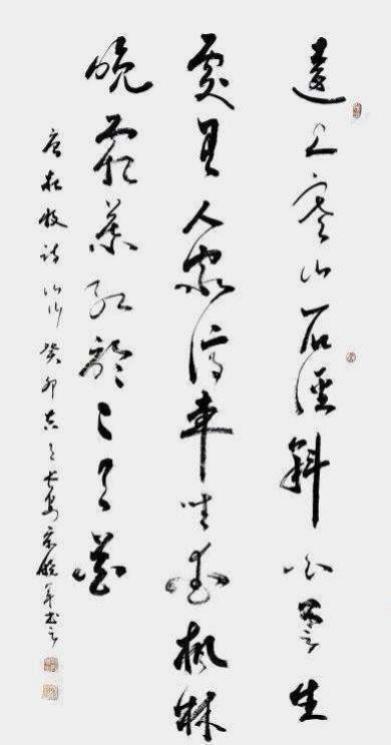 遠上寒山石徑斜白雲生
處有人家停車坐愛楓林
晚霜葉紅於二月花
唐杜牧詩山行癸卯